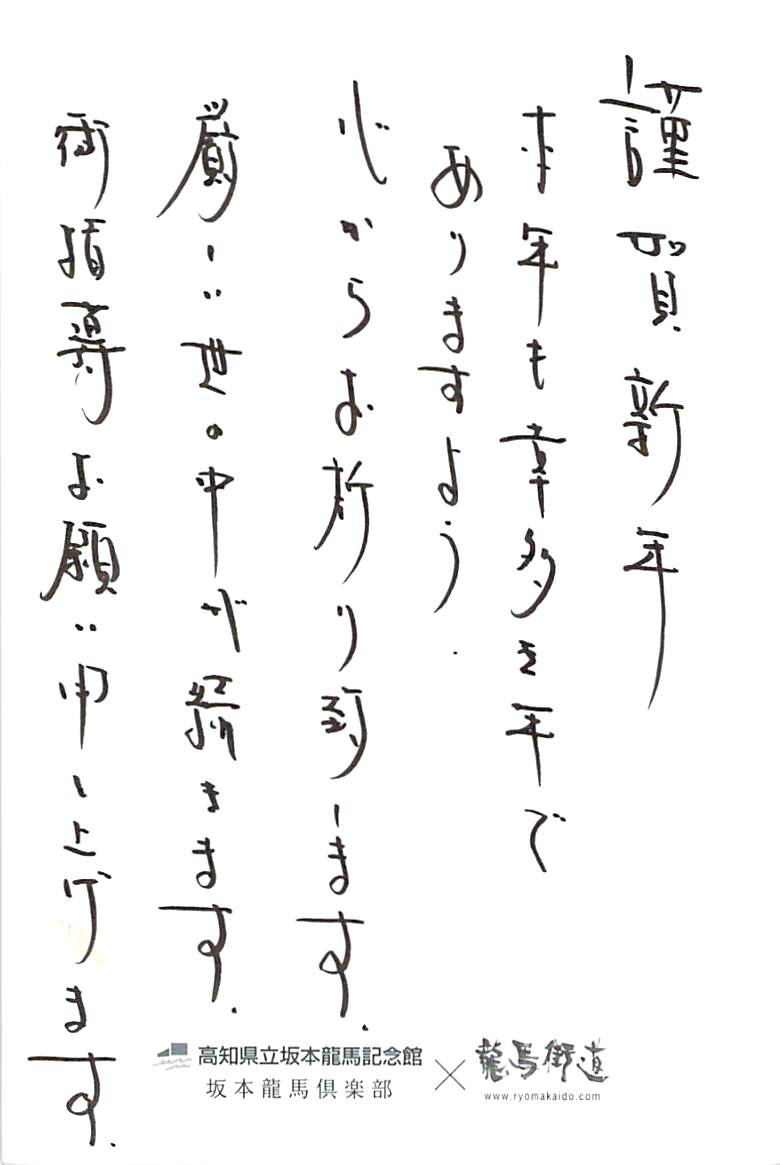 謹賀新年
本年も幸多き年で
ありますよう
心からお祈り致します。
厳しい世の中が続きます。
御指導お願い申し上げます。
高知県立坂本龍馬記念館
坂本龍馬倶楽部
×
龍馬街道
www.ryomakaido.com